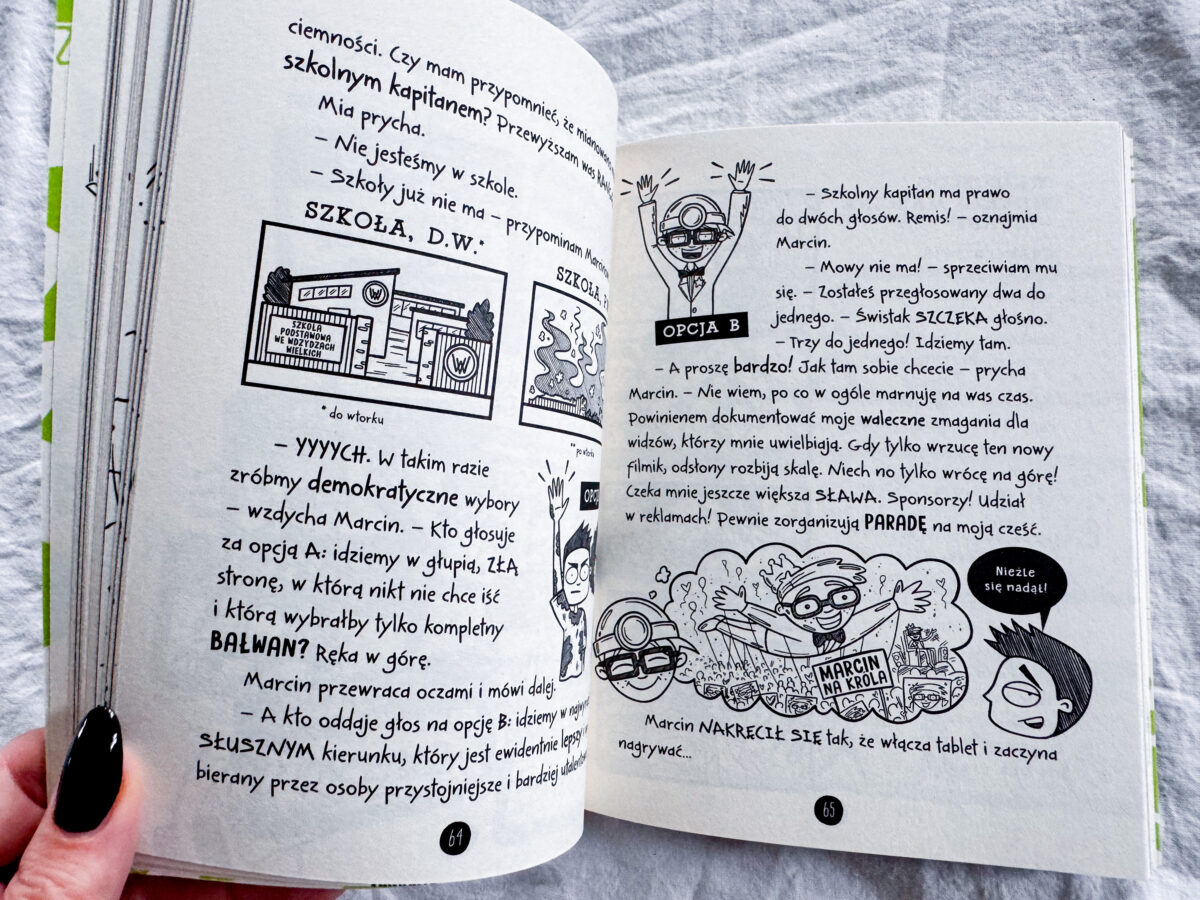 ciemności. Czy mam przypomnieć, że mianowano
szkolnym kapitanem? Przewyższam was
Mia prycha.
– Nie jesteśmy w szkole.
– Szkoły już nie ma – przypominam
SZKOŁA, D.W.*
SZKOŁA
PODSTAWOWA
WE WDZYDZACH
WIELKICH
W
* do wtorku
SZKOŁA,
** po wtorku
– YYYYCH. W takim razie
zróbmy demokratyczne wybory
– wzdycha Marcin. – Kto głosuje
za opcją A: idziemy w głupią, ZŁĄ
stronę, w którą nikt nie chce iść
i którą wybrałby tylko kompletny
BAŁWAN? Ręka w górę.
Marcin przewraca oczami i mówi dalej.
– A kto oddaje głos na opcję B: idziemy w
SŁUSZNYM kierunku, który jest ewidentnie lepszy i
bierany przez osoby przystojniejsze i bardziej
64
OPCJA B
– Szkolny kapitan ma prawo
do dwóch głosów. Remis! – oznajmia
Marcin.
– Mowy nie ma! – sprzeciwiam mu
się. – Zostałeś przegłosowany dwa do
jednego. – Świstak SZCZEKA głośno.
– Trzy do jednego! Idziemy tam.
– A proszę bardzo! Jak tam sobie chcecie – prycha
Marcin. – Nie wiem, po co w ogóle marnuję na was czas.
Powinienem dokumentować moje waleczne zmagania dla
widzów, którzy mnie uwielbiają. Gdy tylko wrzucę ten nowy
filmik, odsłony rozbiją skalę. Niech no tylko wrócę na górę!
Czeka mnie jeszcze większa SŁAWA. Sponsorzy! Udział
w reklamach! Pewnie zorganizują PARADĘ na moją cześć.
MARCIN
NA KRÓLA
Nieźle
się nadął!
Marcin NAKRĘCIŁ SIĘ tak, że włącza tablet i zaczyna
nagrywać...
65